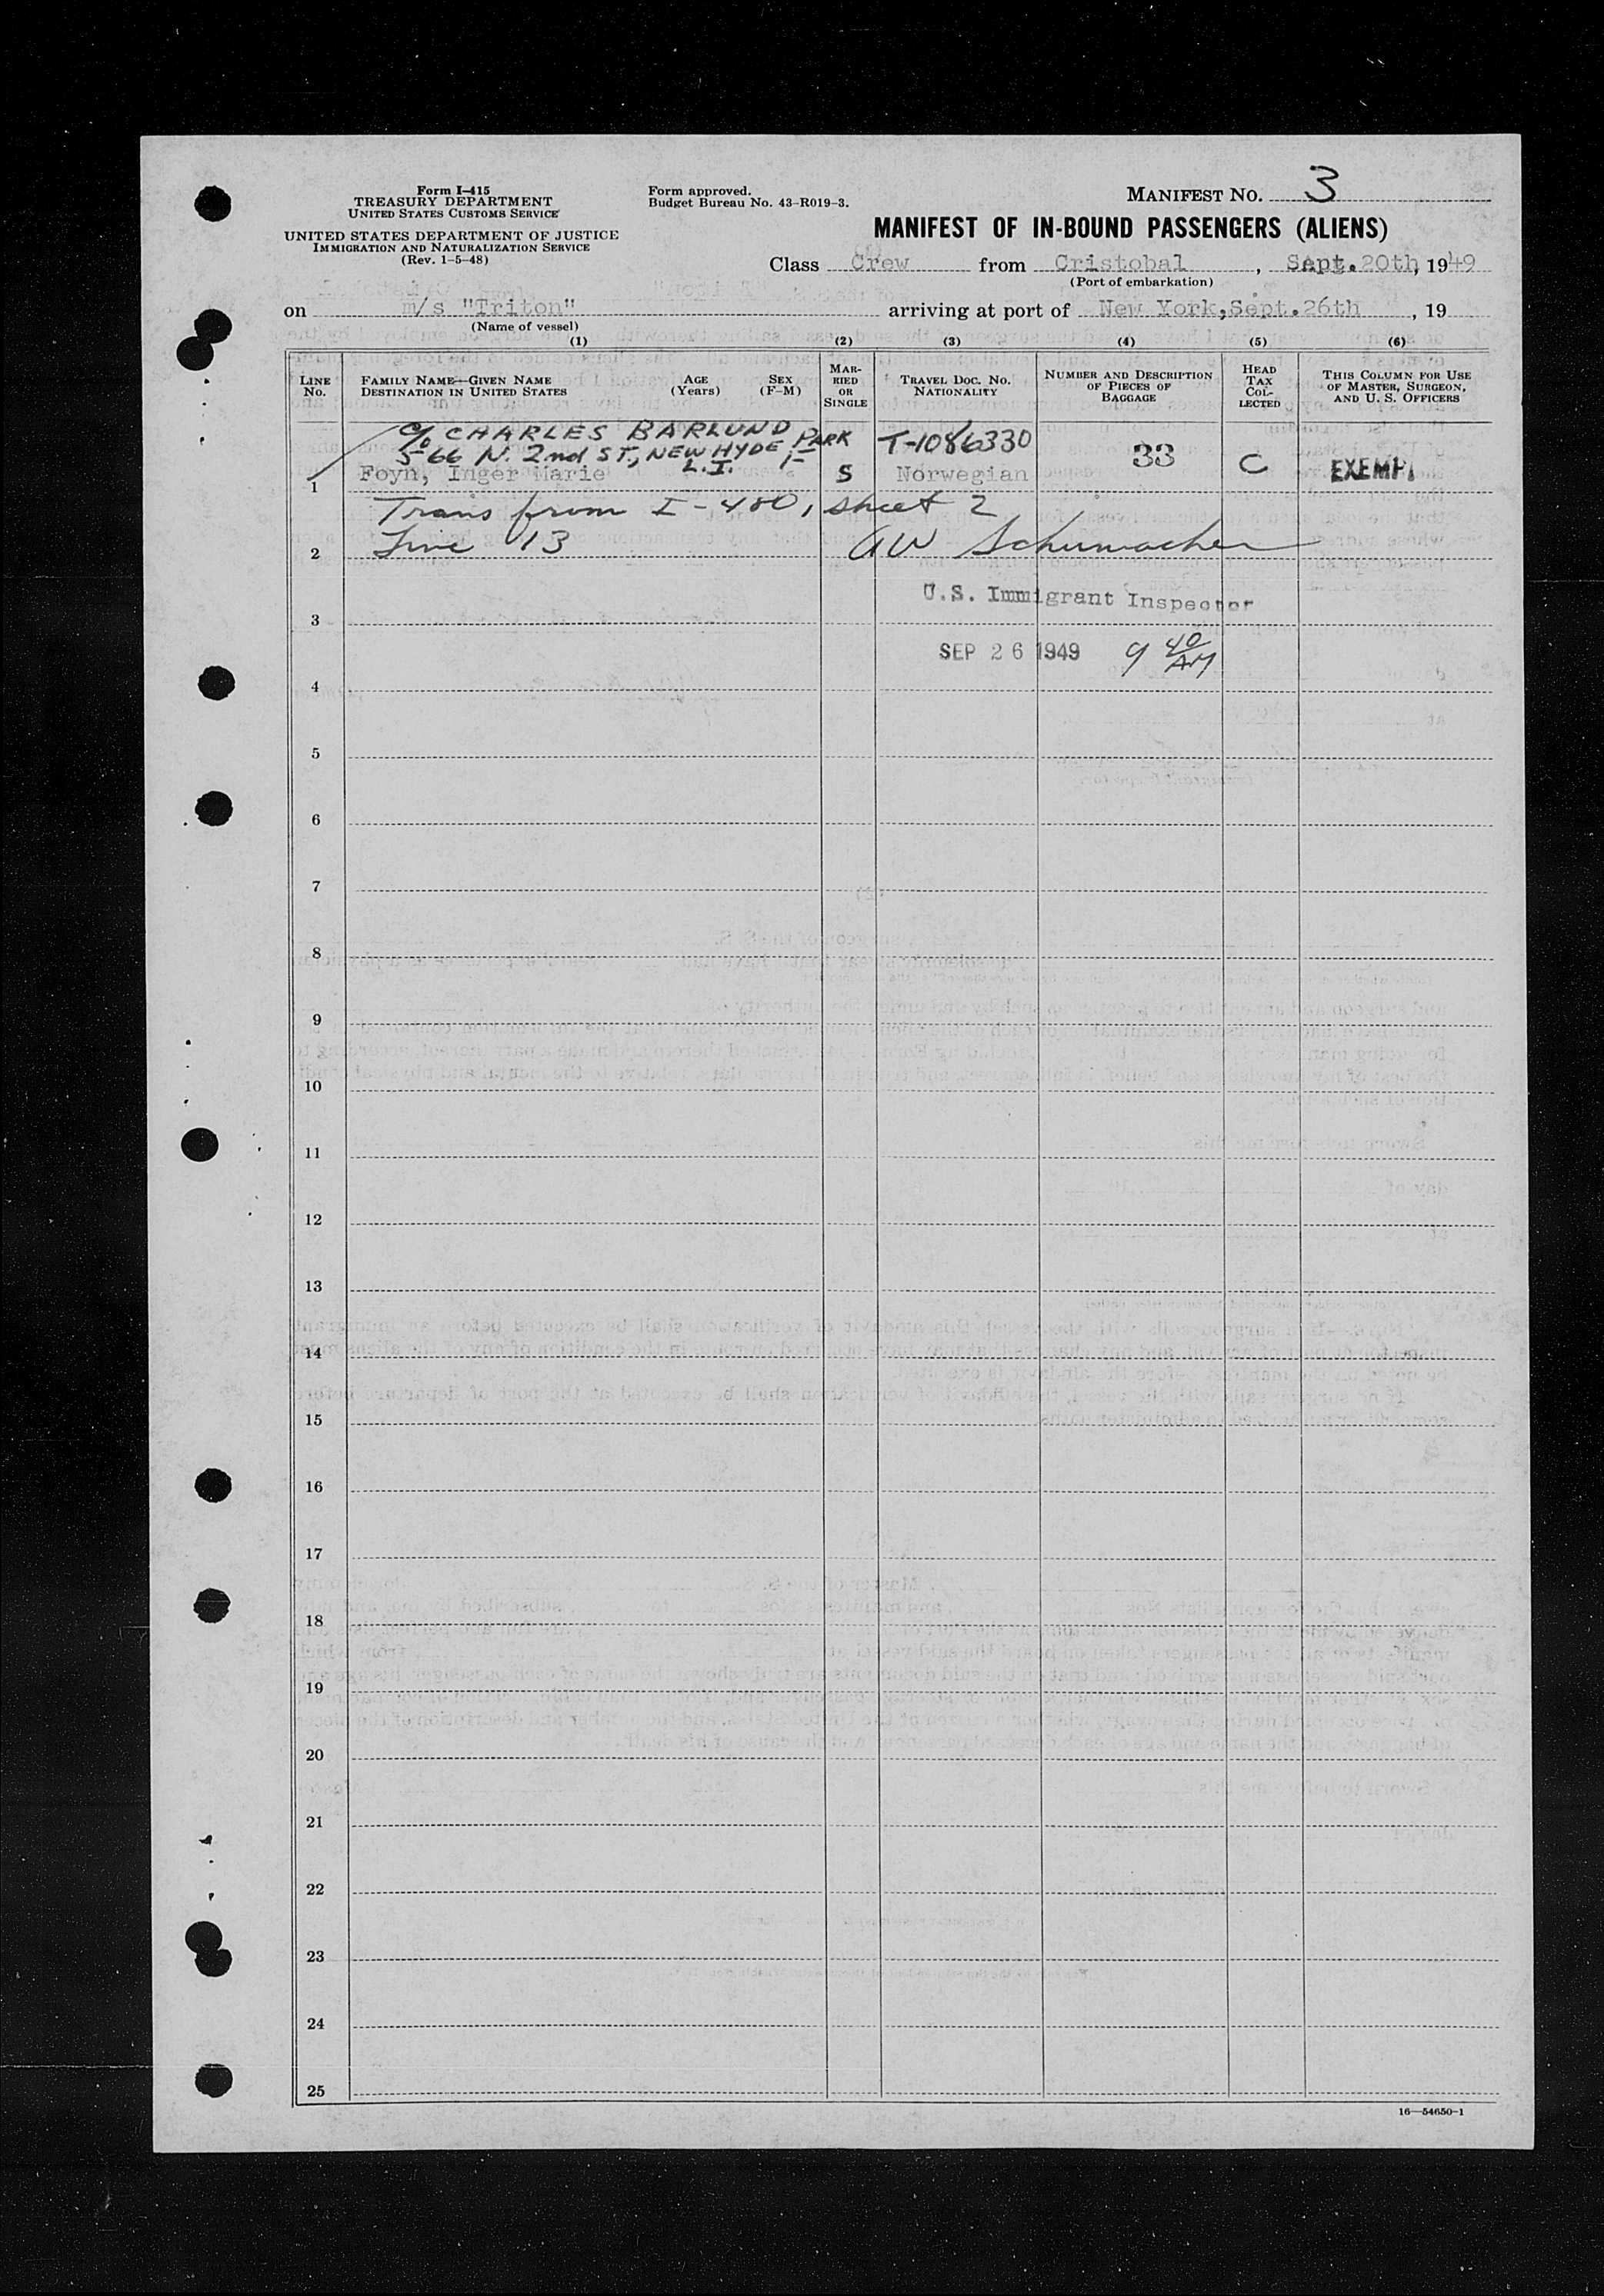 Form I-415
TREASURY DEPARTMENT
UNITED STATES CUSTOMS SERVICE
UNITED STATES DEPARTMENT OF JUSTICE
IMMIGRATION AND NATURALIZATION SERVICE
(Rev. 1-5-48)
Form approved.
Budget Bureau No. 43-R019-3.
MANIFEST NO. 3
MANIFEST OF IN-BOUND PASSENGERS (ALIENS)
Class Crew from Cristobal, Sept. 20th, 1949
(Port of embarkation)
on m/s "Triton" arriving at port of New York, Sept. 26th, 19
(Name of vessel)
(1) (2) (3) (4) (5) (6)
LINE NO.
FAMILY NAME—GIVEN NAME
DESTINATION IN UNITED STATES
AGE (Years)
SEX (F-M)
MARRIED OR SINGLE
TRAVEL DOC. NO.
NATIONALITY
NUMBER AND DESCRIPTION OF PIECES OF BAGGAGE
HEAD TAX COLLECTED
THIS COLUMN FOR USE OF MASTER, SURGEON, AND U. S. OFFICERS
c/o CHARLES BARLUND
566 N. 2nd ST., NEW HYDE PARK
L.I.
T-1086330
1 Foyn, Inger Marie S Norwegian 33 C EXEMPT
Trans from I-480, sheet 2
2 Line 13 AW Schumacher
U.S. Immigrant Inspector
3
SEP 26 1949 9 40 AM
4
5
6
7
8
9
10
11
12
13
14
15
16
17
18
19
20
21
22
23
24
25
16—54650-1